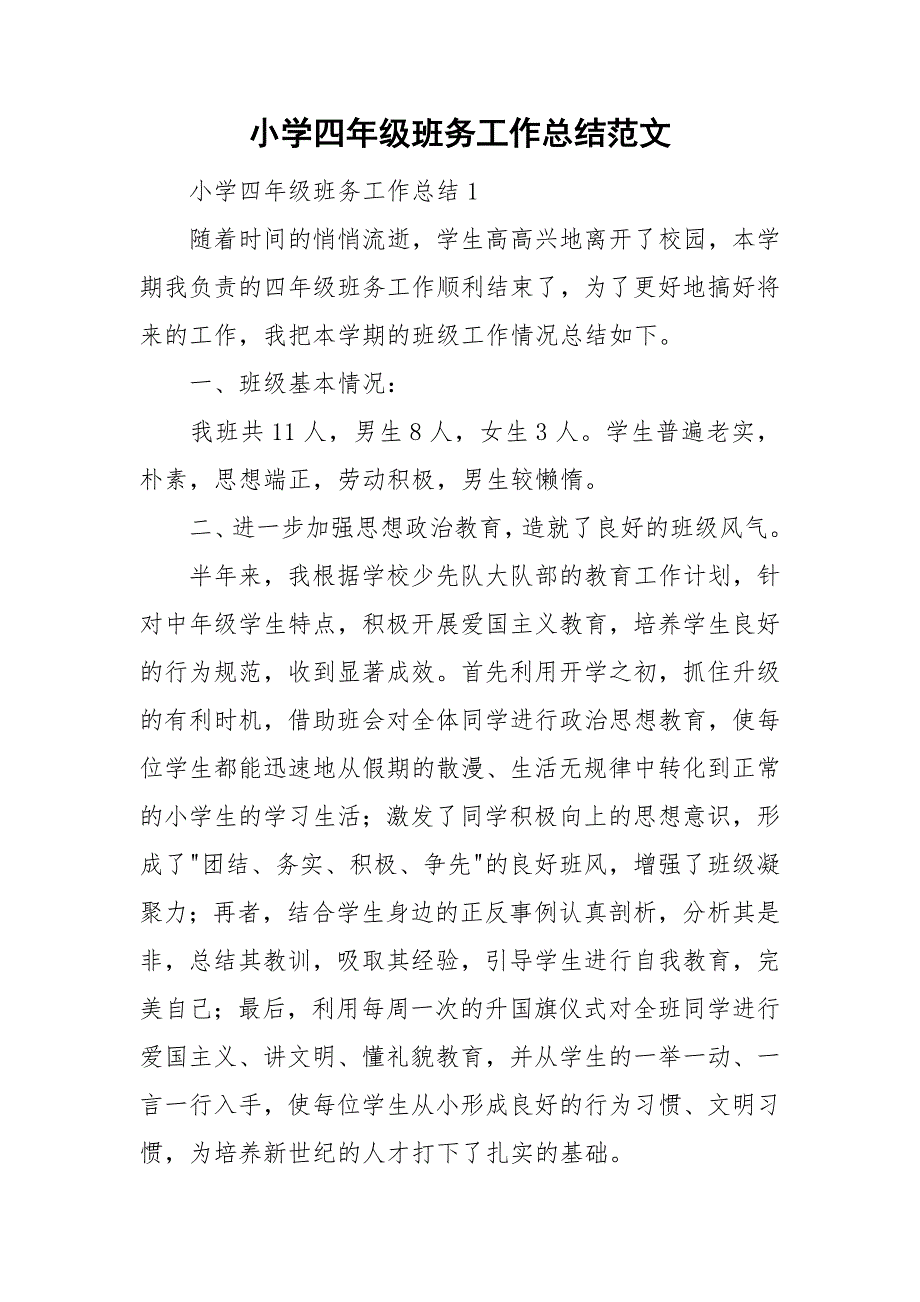 小学四年级班务工作总结范文
小学四年级班务工作总结1
随着时间的悄悄流逝，学生高高兴地离开了校园，本学
期我负责的四年级班务工作顺利结束了，为了更好地搞好将
来的工作，我把本学期的班级工作情况总结如下。
一、班级基本情况：
我班共11人，男生8人，女生3人。学生普遍老实，
朴素，思想端正，劳动积极，男生较懒惰。
二、进一步加强思想政治教育，造就了良好的班级风气。
半年来，我根据学校少先队大队部的教育工作计划，针
对中年级学生特点，积极开展爱国主义教育，培养学生良好
的行为规范，收到显著成效。首先利用开学之初，抓住升级
的有利时机，借助班会对全体同学进行政治思想教育，使每
位学生都能迅速地从假期的散漫、生活无规律中转化到正常
的小学生的学习生活；激发了同学积极向上的思想意识，形
成了"团结、务实、积极、争先"的良好班风，增强了班级凝
聚力；再者，结合学生身边的正反事例认真剖析，分析其是
非，总结其教训，吸取其经验，引导学生进行自我教育，完
美自己；最后，利用每周一次的升国旗仪式对全班同学进行
爱国主义、讲文明、懂礼貌教育，并从学生的一举一动、一
言一行入手，使每位学生从小形成良好的行为习惯、文明习
惯，为培养新世纪的人才打下了扎实的基础。